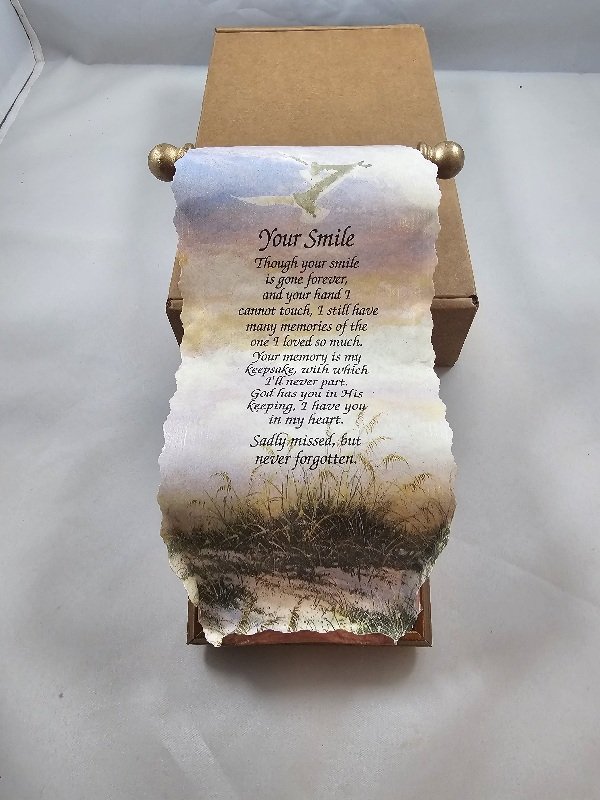 Your Smile
Though your smile
is gone forever,
and your hand I
cannot touch, I still have
many memories of the
one I loved so much.
Your memory is my
keepsake, with which
I'll never part.
God has you in His
keeping, I have you
in my heart.
Sadly missed, but
never forgotten.